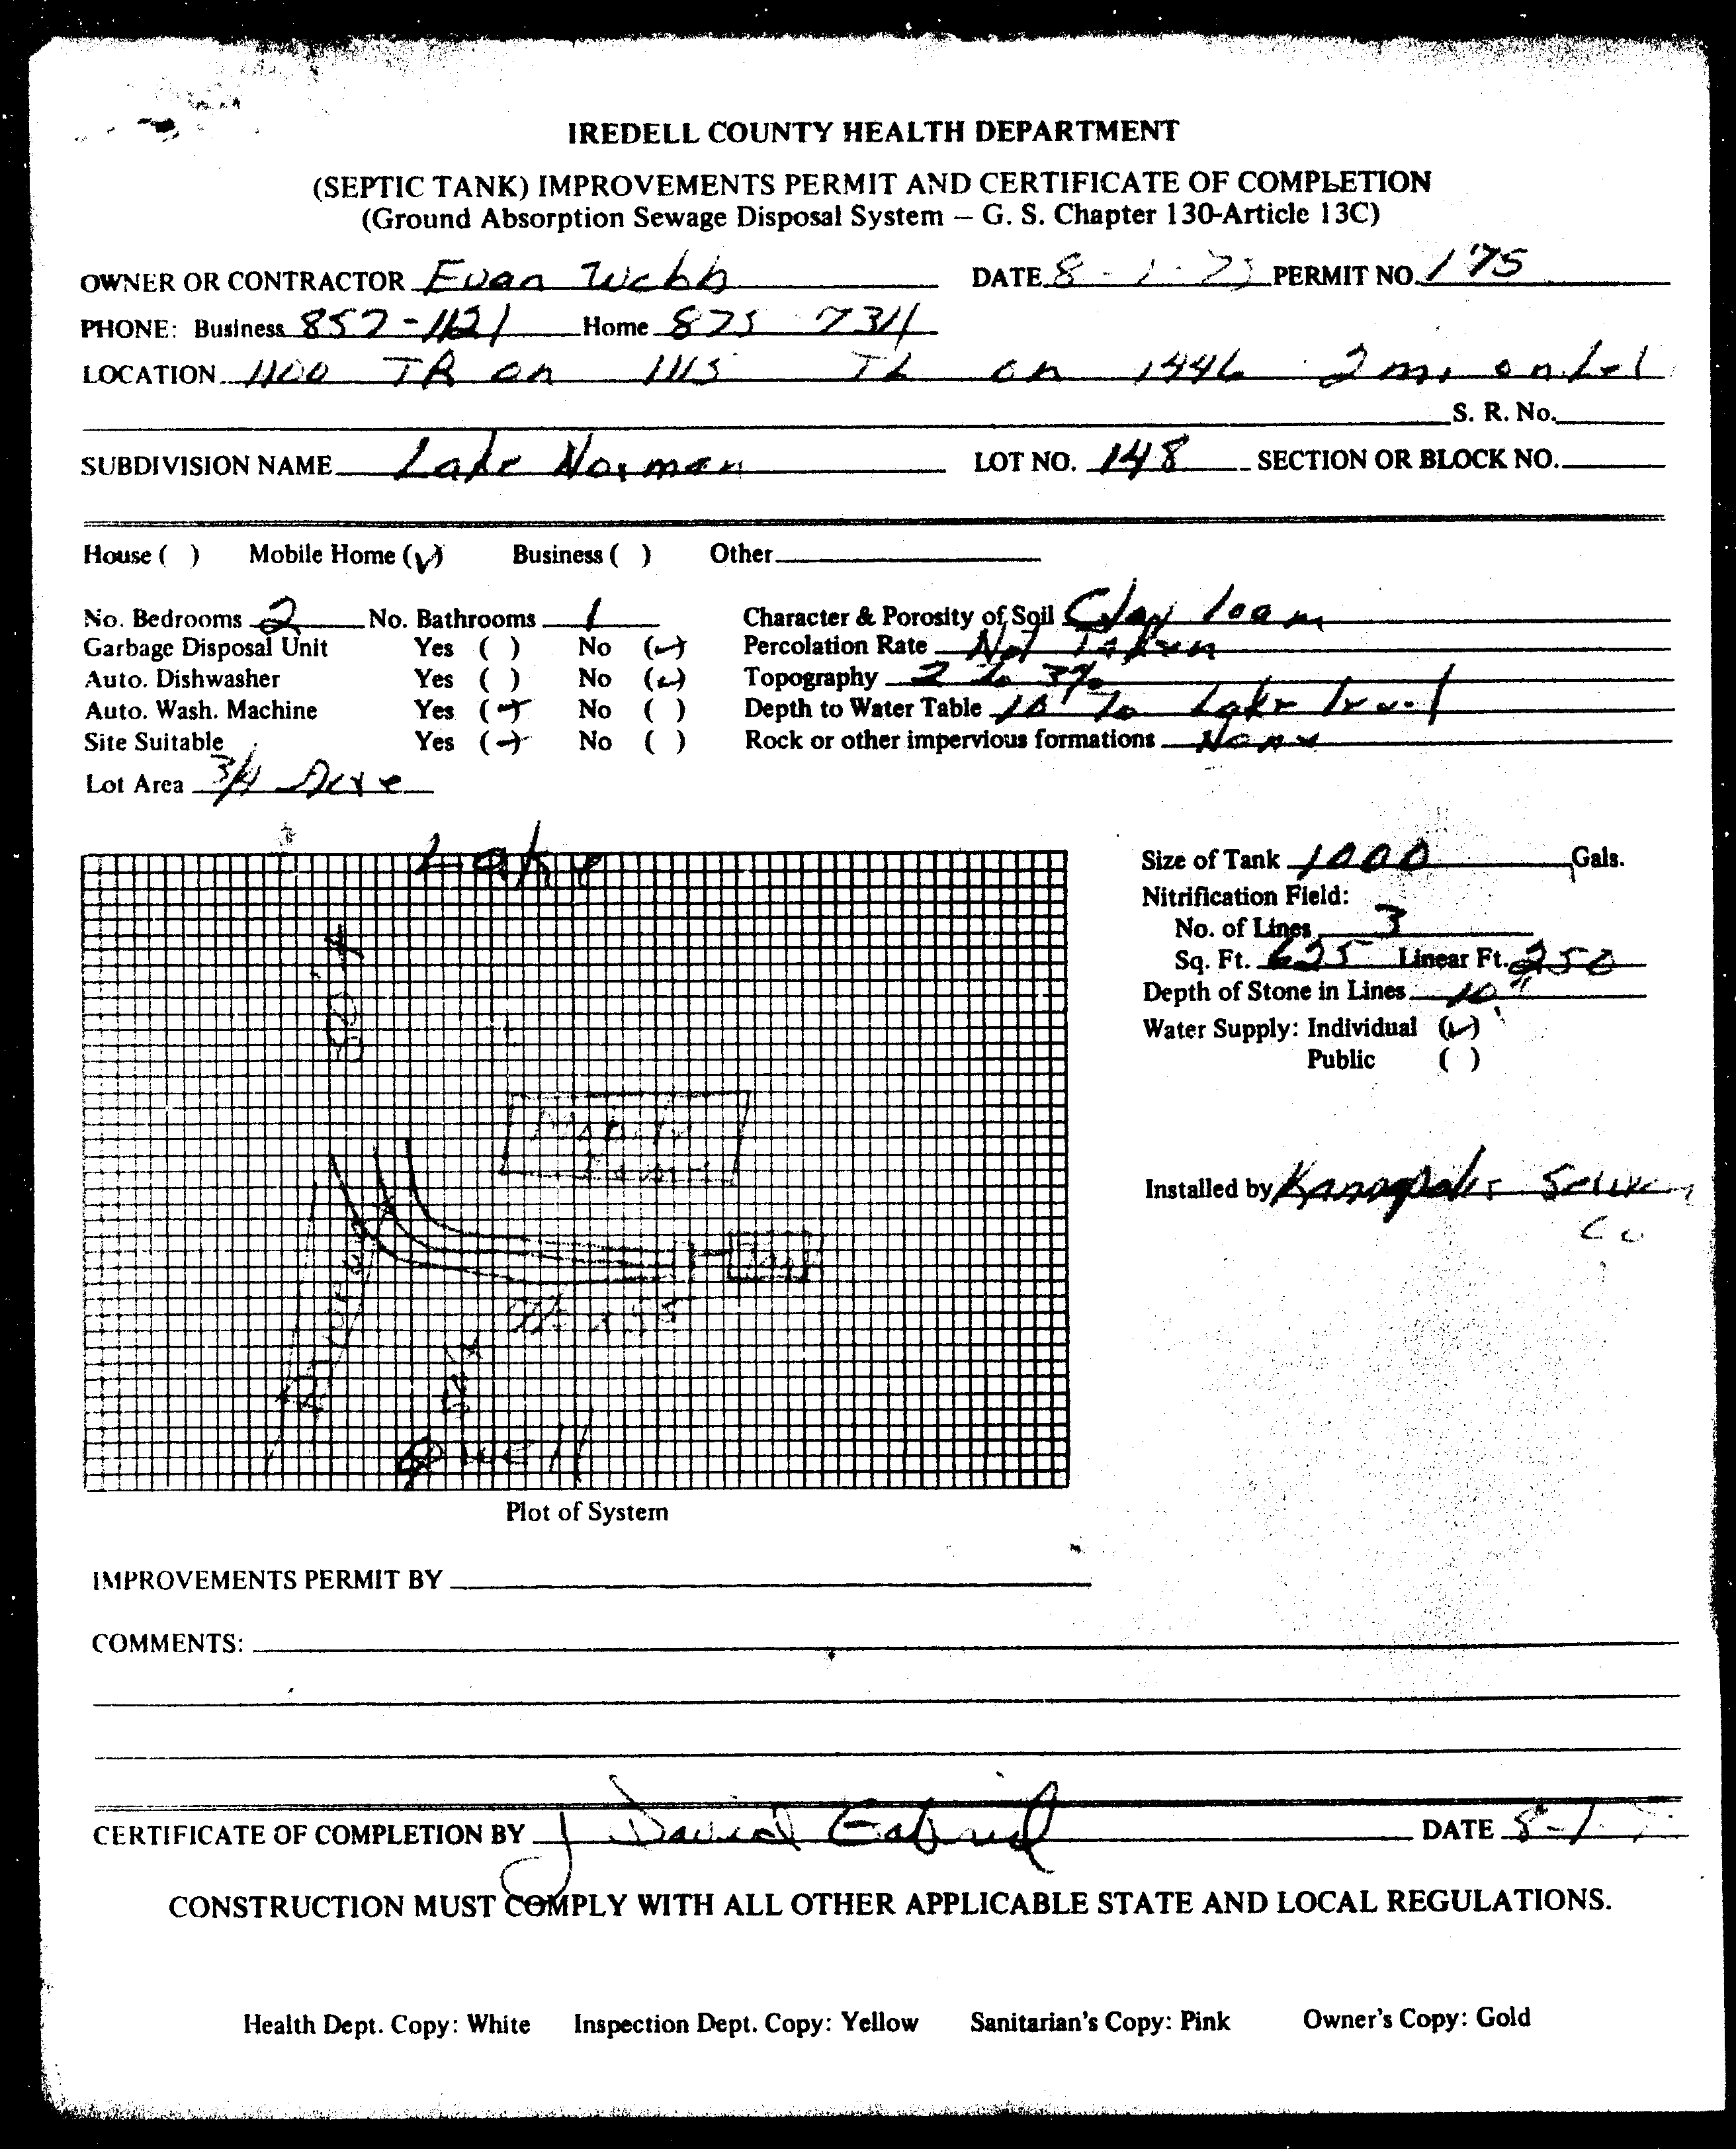 IREDELL COUNTY HEALTH DEPARTMENT
(SEPTIC TANK) IMPROVEMENTS PERMIT AND CERTIFICATE OF COMPLETION
(Ground Absorption Sewage Disposal System – G. S. Chapter 130-Article 13C)
OWNER OR CONTRACTOR Evan Webb DATE 8-1- PERMIT NO. 175
PHONE: Business 857-1121 Home 875 7311
LOCATION 1100 TR on 1115 TL on 1446 2 mi on
S. R. No.
SUBDIVISION NAME Lake Norman LOT NO. 148 SECTION OR BLOCK NO.
House ( ) Mobile Home (✓) Business ( ) Other
No. Bedrooms 2 No. Bathrooms 1 Character & Porosity of Soil Clay loam
Garbage Disposal Unit Yes ( ) No (✓) Percolation Rate Not taken
Auto. Dishwasher Yes ( ) No (✓) Topography 2 to 3%
Auto. Wash. Machine Yes (✓) No ( ) Depth to Water Table 10' To Lake level
Site Suitable Yes (✓) No ( ) Rock or other impervious formations None
Lot Area 3/4 Acre
Lake
Size of Tank 1000 Gals.
Nitrification Field:
No. of Lines 3
Sq. Ft. 625 Linear Ft. 250
Depth of Stone in Lines 10"
Water Supply: Individual (✓)
Public ( )
Mobile
Home
Installed by Kannapolis
Co
Well
Plot of System
IMPROVEMENTS PERMIT BY
COMMENTS:
CERTIFICATE OF COMPLETION BY J David Gabriel DATE 8-1
CONSTRUCTION MUST COMPLY WITH ALL OTHER APPLICABLE STATE AND LOCAL REGULATIONS.
Health Dept. Copy: White Inspection Dept. Copy: Yellow Sanitarian's Copy: Pink Owner's Copy: Gold